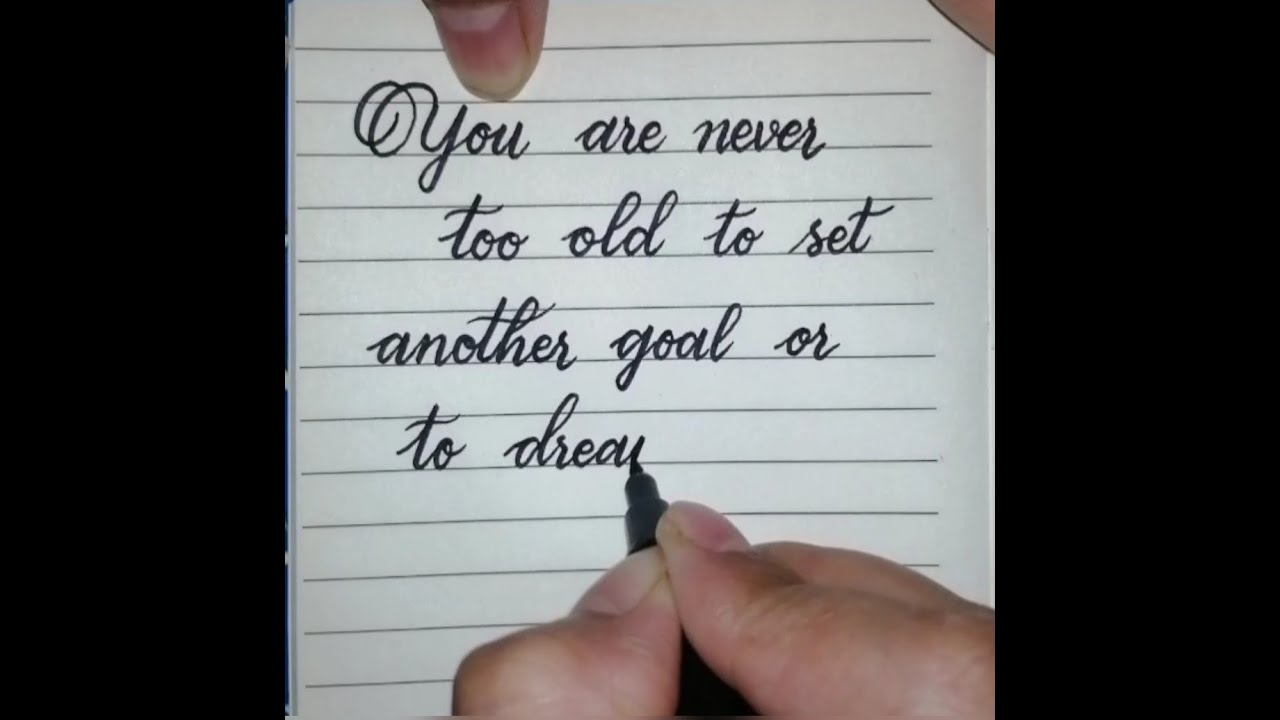 You are never
too old to set
another goal or
to drea